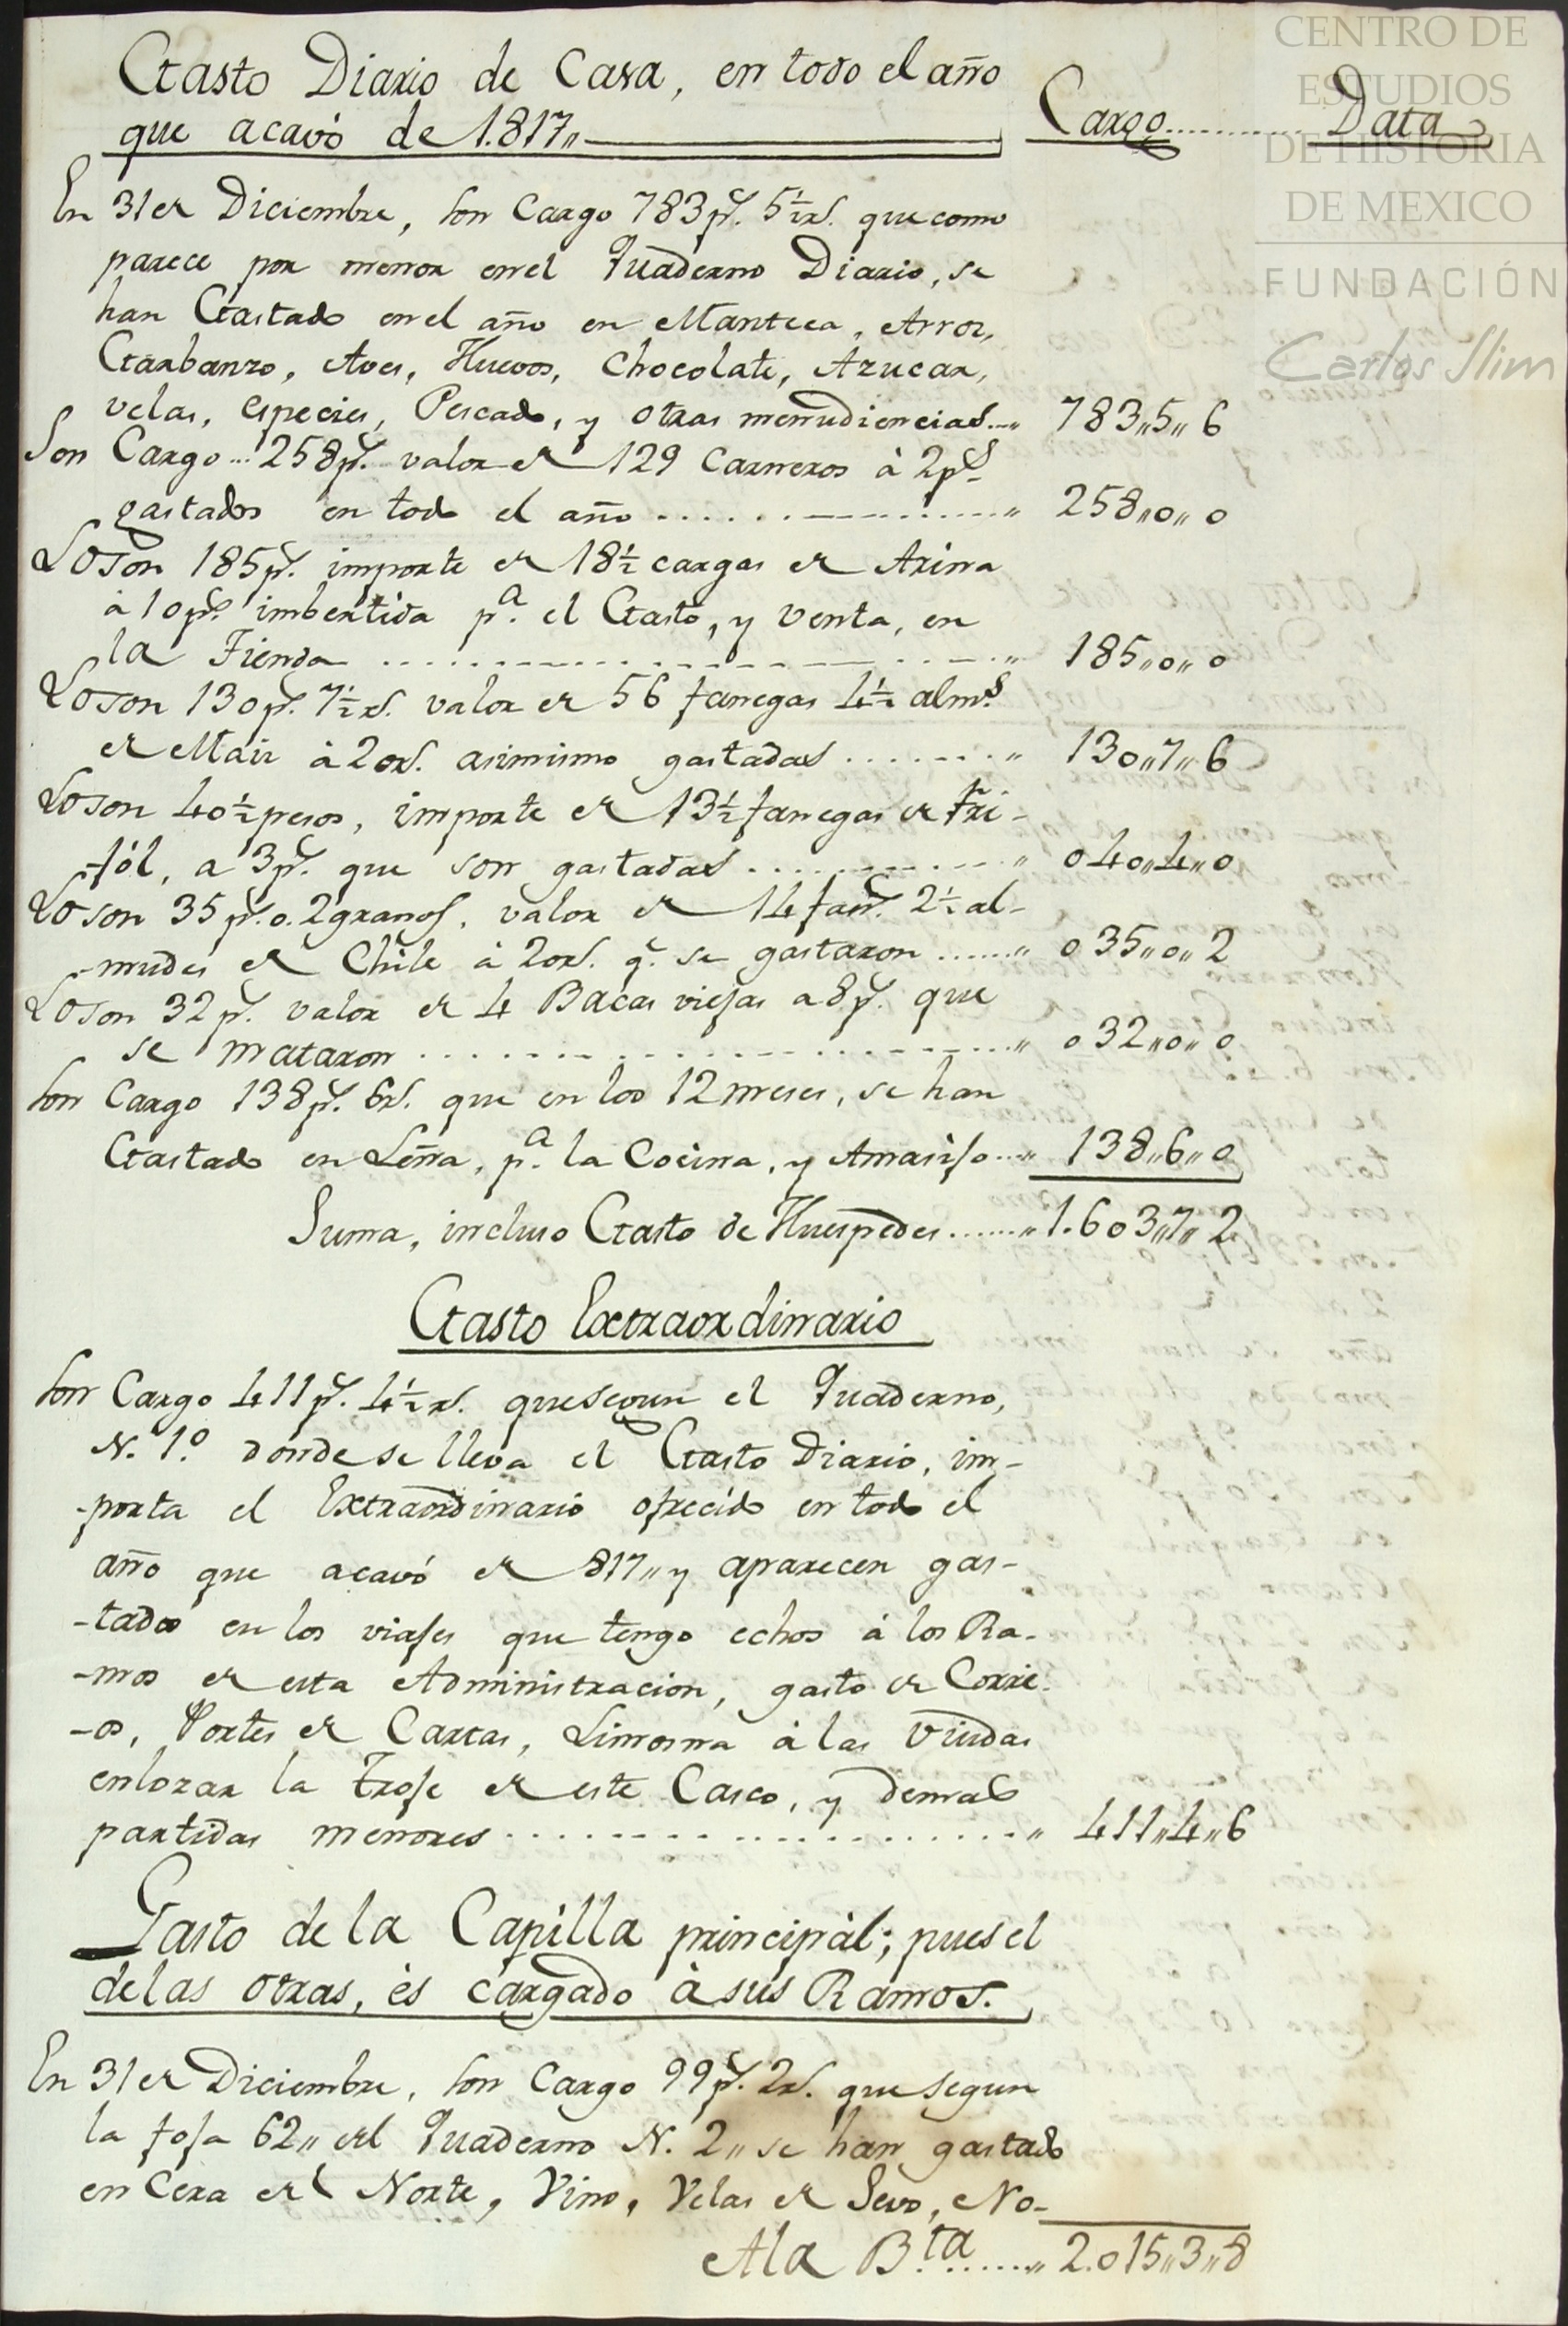 Gasto Diario de Casa, en todo el año
que acavó de 1.817,,
Cargo............ Data
En 31 de Diciembre, son Cargo 783 p.s 5½ r.s que como
parece por menor en el Quaderno Diario, se
han Gastado en el año en Manteca, Arroz,
Garbanzo, Aves, Huevos, Chocolate, Azucar,
velas, especies, Pescado, y otras menudiencias...,, 783,,5,,6
Son Cargo... 258 p.s valor de 129 Carneros à 2 p.s
gastados en todo el año ..............,, 258,,0,,0
Lo son 185 p.s importe de 18½ cargas de Arina
à 10 p.s imbertida p.a el Gasto, y venta, en
la Tienda ..............,, 185,,0,,0
Lo son 130 p.s 7½ r.s valor de 56 fanegas 4½ alm.s
de Maiz à 20 r.s asimismo gastadas ........,, 130,,7,,6
Lo son 40½ pesos, importe de 13½ fanegas de Fri-
-jól, a 3 p.s que son gastadas ..............,, 040,,4,,0
Lo son 35 p.s 0. 2 granos, valor de 14 fan.s 2½ al-
-mudes de Chile à 20 r.s q.e se gastaron ......,, 035,,0,,2
Lo son 32 p.s valor de 4 Bacas viejas a 8 p.s que
se mataron ..............,, 032,,0,,0
Son Cargo 138 p.s 6 r.s que en los 12 meses, se han
Gastado en Leña, p.a la Cocina, y Amasijo...,, 138,,6,,0
Suma, incluso Gasto de Huespedes.......,, 1.603,,7,,2
Gasto Extraordinario
Son Cargo 411 p.s 4½ r.s que segun el Quaderno,
N. 1.o donde se lleva el Gasto Diario, im-
-porta el Extraordinario ofrecido en todo el
año que acavó de 817,, y aparecen gas-
-tados en los viajes que tengo echos à los Ra-
-mos de esta Administracion, gasto de Corre-
-os, Portes de Cartas, Limosna à las Viudas
enlozar la Troje de este Casco, y demas
partidas menores ..............,, 411,,4,,6
Gasto de la Capilla principàl; pues el
de las otras, ès cargado à sus Ramos.
En 31 de Diciembre, son Cargo 99 p.s 2 r.s que segun
la foja 62,, del Quaderno N. 2,, se han gastado
en Cera del Norte, Vino, Velas de Sevo, No-
A la B.ta ......,, 2.015,,3,,8
CENTRO DE
ESTUDIOS
DE HISTORIA
DE MEXICO
FUNDACIÓN
Carlos Slim